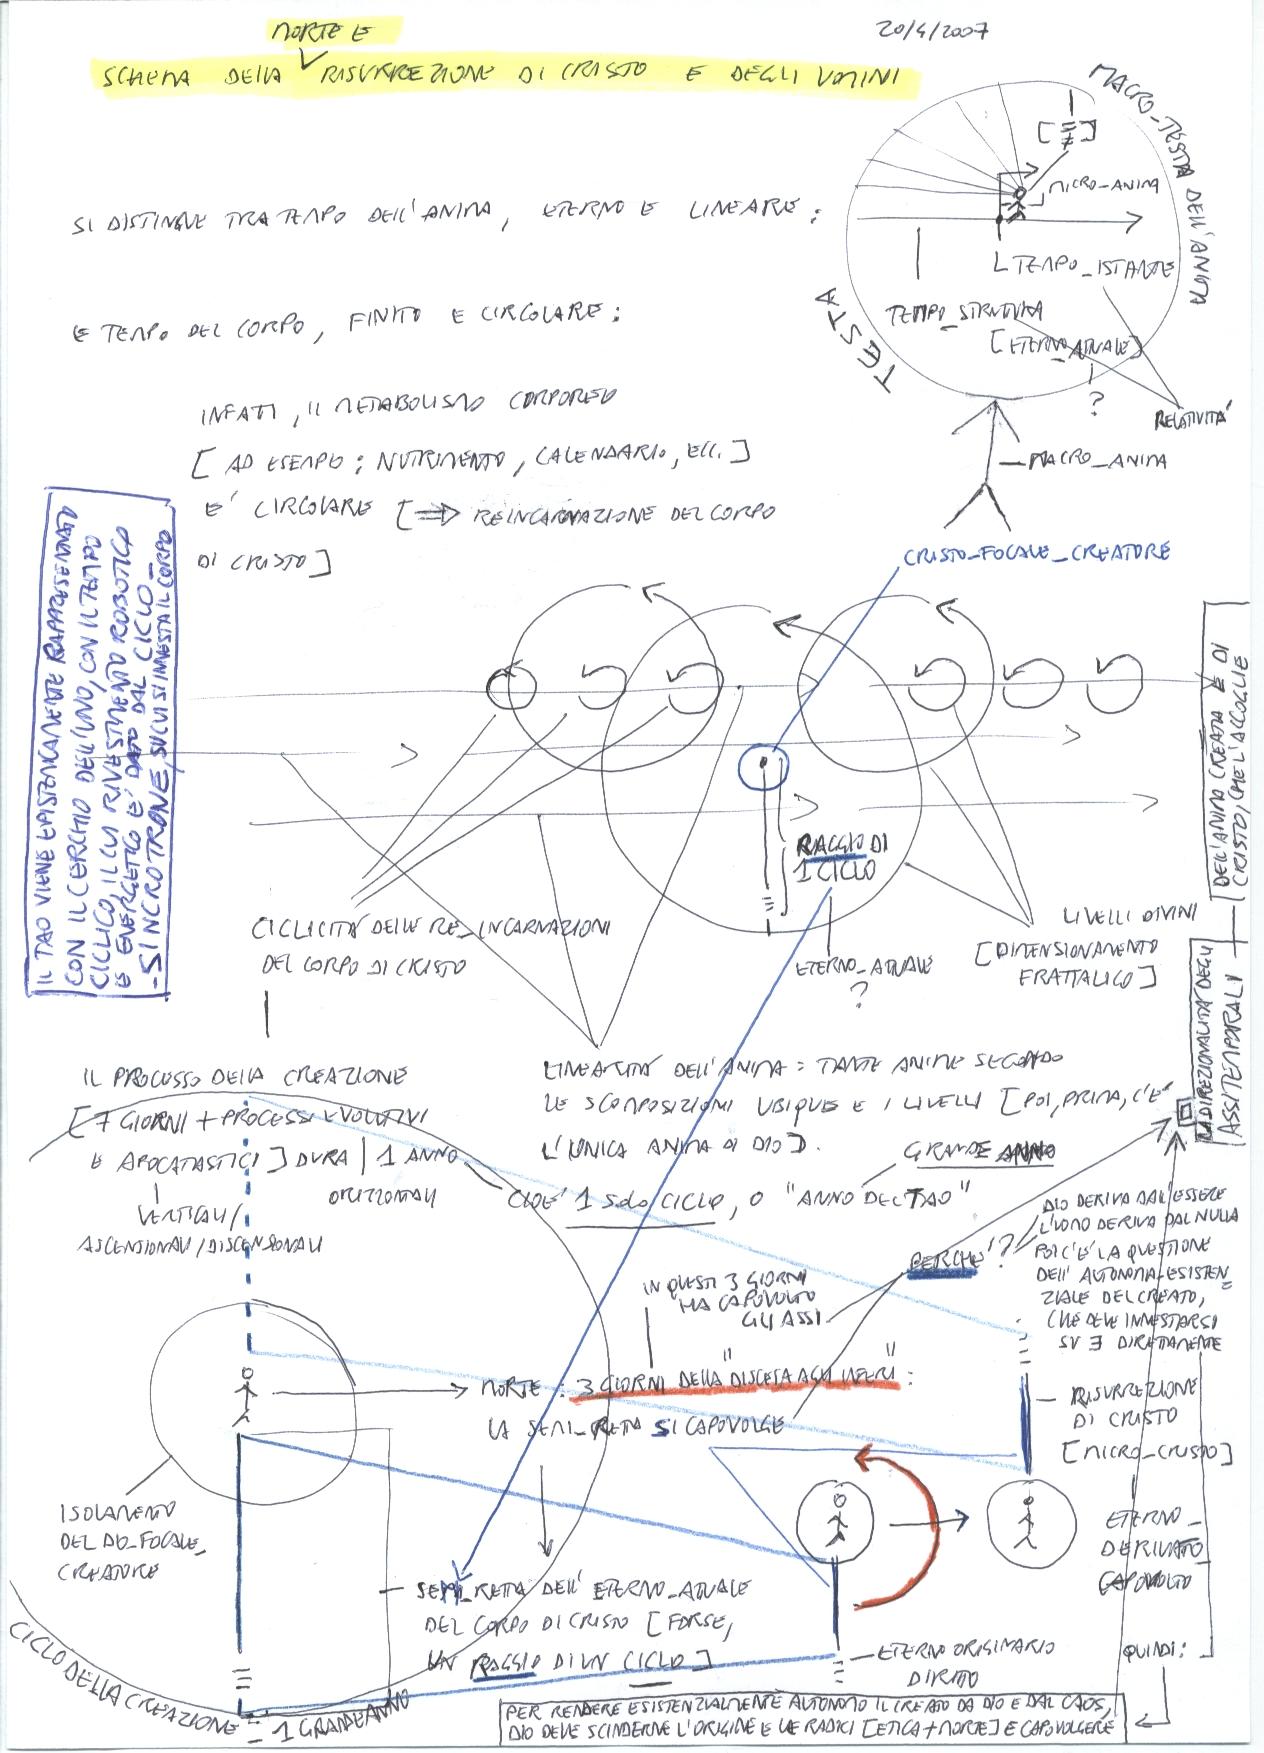 20/4/2007
MORTE E
SCHEMA DELLA RISURREZIONE DI CRISTO E DEGLI UOMINI
MACRO_TESTA DELL'ANIMA
MICRO_ANIMA
TEMPO_ISTANTE
TEMPO_STRUTTURA
[ETERNO_ATTUALE]
?
RELATIVITÀ
TESTA
MACRO_ANIMA
SI DISTINGUE TRA TEMPO DELL'ANIMA, ETERNO E LINEARE;
E TEMPO DEL CORPO, FINITO E CIRCOLARE;
INFATTI, IL METABOLISMO CORPOREO
[AD ESEMPIO; NUTRIMENTO, CALENDARIO, ECC.]
E' CIRCOLARE [⇒ REINCARNAZIONE DEL CORPO
DI CRISTO]
CRISTO_FOCALE_CREATORE
IL TAO VIENE EPISTEMICAMENTE RAPPRESENTATO
CON IL CERCHIO DELL'UNO, CON IL TEMPO
CICLICO, IL CUI RIVESTIMENTO ROBOTICO
E ENERGETICO E' DATO DAL CICLO_
-SINCROTRONE, SU CUI SI INNESTA IL CORPO
RAGGIO DI
1 CICLO
ETERNO_ATTUALE
?
CICLICITÀ DELLE RE_INCARNAZIONI
DEL CORPO DI CRISTO
LIVELLI DIVINI
[DIMENSIONAMENTO
FRATTALICO]
DELL'ANIMA CREATA E DI
CRISTO, CHE L'ACCOGLIE
RADIREZIONALITÀ DEGLI
ASSI TEMPORALI
IL PROCESSO DELLA CREAZIONE
[7 GIORNI + PROCESSI EVOLUTIVI
E APOCATASTICI] DURA 1 ANNO
VERTICALI/
ASCENSIONALI/DISCENSIONALI
ORIZZONTALI
LINEARITÀ DELL'ANIMA = TANTE ANIME SECONDO
LE SCOMPOSIZIONI UBIQUE E I LIVELLI [POI, PRIMA, C'E'
L'UNICA ANIMA DI DIO].
GRANDE ANNO
CIOE' 1 SOLO CICLO, O "ANNO DEL TAO"
PERCHE'?
DIO DERIVA DALL'ESSERE
L'UOMO DERIVA DAL NULLA
POI C'E' LA QUESTIONE
DELL'AUTONOMIA_ESISTEN_
ZIALE DEL CREATO,
CHE DEVE INNESTARSI
SU ∃ DIRETTAMENTE
IN QUESTI 3 GIORNI
HA CAPOVOLTO
GLI ASSI
MORTE: 3 GIORNI DELLA "DISCESA AGLI INFERI":
LA SEMI_RETTA SI CAPOVOLGE
RISURREZIONE
DI CRISTO
[MICRO_CRISTO]
ETERNO_
DERIVATO
CAPOVOLTO
ISOLAMENTO
DEL DIO_FOCALE_
CREATORE
SEMI_RETTA DELL'ETERNO_ATTUALE
DEL CORPO DI CRISTO [FORSE,
UN RAGGIO DI UN CICLO]
ETERNO ORIGINARIO
DIRITTO
QUINDI:
CICLO DELLA CREAZIONE
1 GRANDE ANNO
PER RENDERE ESISTENZIALMENTE AUTONOMO IL CREATO DA DIO E DAL CAOS,
DIO DEVE SCINDERNE L'ORIGINE E LE RADICI [ETICA+MORTE] E CAPOVOLGERE